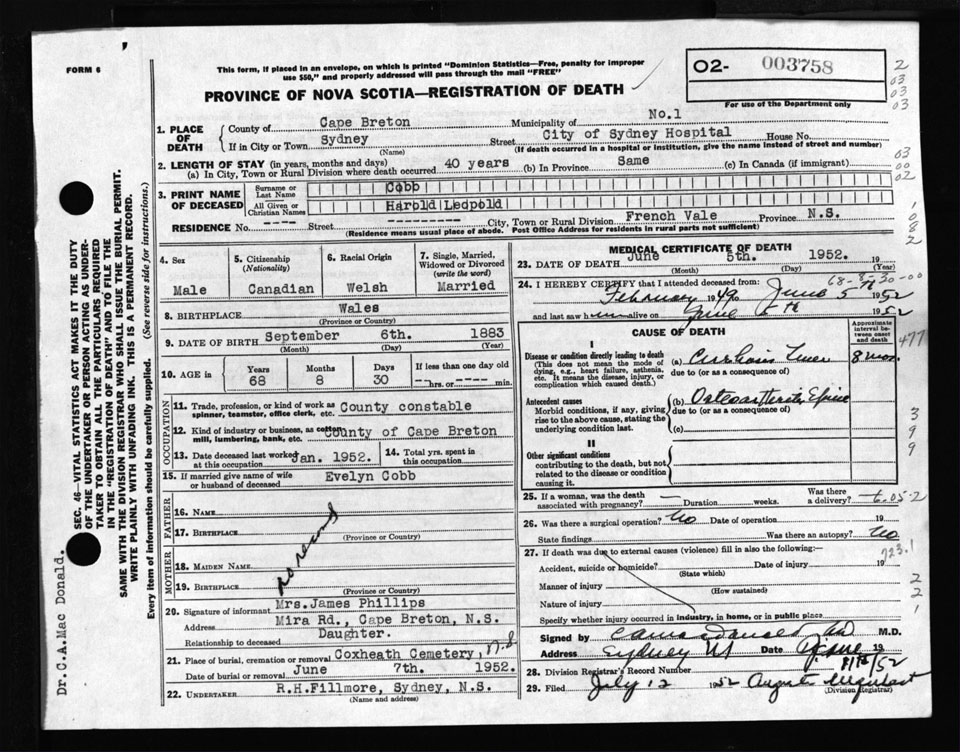 FORM 6
This form, if placed in an envelope, on which is printed "Dominion Statistics—Free, penalty for improper
use $50," and properly addressed will pass through the mail "FREE"
PROVINCE OF NOVA SCOTIA—REGISTRATION OF DEATH
O2- 003758
For use of the Department only
2
03
03
03
1. PLACE OF DEATH
County of Cape Breton Municipality of No.1
If in City or Town Sydney Street City of Sydney Hospital House No.
(Name) (If death occurred in a hospital or institution, give the name instead of street and number)
2. LENGTH OF STAY (in years, months and days)
(a) In City, Town or Rural Division where death occurred 40 years (b) In Province Same (c) In Canada (if immigrant)
03
00
02
3. PRINT NAME OF DECEASED
Surname or Last Name Cobb
All Given or Christian Names Harold Leopold
RESIDENCE No. ---- Street --------- City, Town or Rural Division French Vale Province N.S.
(Residence means usual place of abode. Post Office Address for residents in rural parts not sufficient)
1
0
8
2
4. Sex Male
5. Citizenship (Nationality) Canadian
6. Racial Origin Welsh
7. Single, Married, Widowed or Divorced (write the word) Married
8. BIRTHPLACE Wales
(Province or Country)
9. DATE OF BIRTH September 6th. 1883
(Month) (Day) (Year)
10. AGE in Years 68 Months 8 Days 30 If less than one day old ---hrs. or ----min.
OCCUPATION
11. Trade, profession, or kind of work as spinner, teamster, office clerk, etc. County constable
12. Kind of industry or business, as cotton mill, lumbering, bank, etc. County of Cape Breton
13. Date deceased last worked at this occupation Jan. 1952.
14. Total yrs. spent in this occupation
15. If married give name of wife or husband of deceased Evelyn Cobb
FATHER
16. Name
17. Birthplace
(Province or Country)
no record
MOTHER
18. Maiden Name
19. Birthplace
(Province or Country)
20. Signature of informant Mrs.James Phillips
Address Mira Rd., Cape Breton, N.S.
Relationship to deceased Daughter.
21. Place of burial, cremation or removal Coxheath Cemetery, N.S
Date of burial or removal June 7th. 1952.
22. Undertaker R.H.Fillmore, Sydney, N.S.
(Name and address)
MEDICAL CERTIFICATE OF DEATH
23. DATE OF DEATH June 5th. 1952. 19
(Month) (Day) (Year)
68-8-30-00
24. I HEREBY CERTIFY that I attended deceased from:
February 1949 to June 5th 1952
and last saw h im alive on June 5th 1952
CAUSE OF DEATH
Approximate interval between onset and death
I
Disease or condition directly leading to death
(This does not mean the mode of dying, e.g., heart failure, asthenia, etc. It means the disease, injury, or complication which caused death.)
(a) 8 mos.
due to (or as a consequence of)
477
Antecedent causes
Morbid conditions, if any, giving rise to the above cause, stating the underlying condition last.
(b) Osteoarthritis Spine
due to (or as a consequence of)
(c)
3
9
9
II
Other significant conditions
contributing to the death, but not related to the disease or condition causing it.
25. If a woman, was the death associated with pregnancy? — Duration weeks. Was there a delivery? —
6.05.2
26. Was there a surgical operation? No Date of operation 19
State findings Was there an autopsy? No
27. If death was due to external causes (violence) fill in also the following:—
723.1
Accident, suicide or homicide? Date of injury 19
(State which)
Manner of injury
(How sustained)
Nature of injury
Specify whether injury occurred in industry, in home, or in public place
2
2
1
Signed by M.D.
Address Sydney NS Date 19
28. Division Registrar's Record Number
29. Filed July 12 1952
(Division Registrar)
SEC. 46—VITAL STATISTICS ACT MAKES IT THE DUTY
OF THE UNDERTAKER OR PERSON ACTING AS UNDER-
TAKER TO OBTAIN ALL THE PARTICULARS REQUIRED
IN THE "REGISTRATION OF DEATH" AND TO FILE THE
SAME WITH THE DIVISION REGISTRAR WHO SHALL ISSUE THE BURIAL PERMIT.
WRITE PLAINLY WITH UNFADING INK. THIS IS A PERMANENT RECORD.
Every item of information should be carefully supplied. (See reverse side for instructions.)
Dr.C.A.Mac Donald.